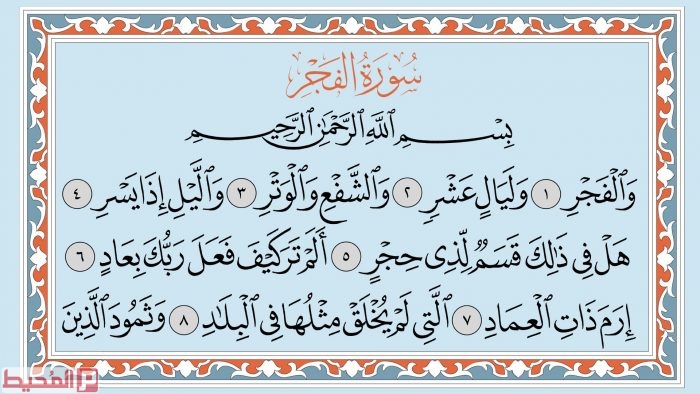 سُورَةُ الفَجْرِ
بِسْمِ اللَّهِ الرَّحْمَٰنِ الرَّحِيمِ
وَالْفَجْرِ ١ وَلَيَالٍ عَشْرٍ ٢ وَالشَّفْعِ وَالْوَتْرِ ٣ وَاللَّيْلِ إِذَا يَسْرِ ٤
هَلْ فِي ذَٰلِكَ قَسَمٌ لِّذِي حِجْرٍ ٥ أَلَمْ تَرَ كَيْفَ فَعَلَ رَبُّكَ بِعَادٍ ٦
إِرَمَ ذَاتِ الْعِمَادِ ٧ الَّتِي لَمْ يُخْلَقْ مِثْلُهَا فِي الْبِلَادِ ٨ وَثَمُودَ الَّذِينَ
المحيط